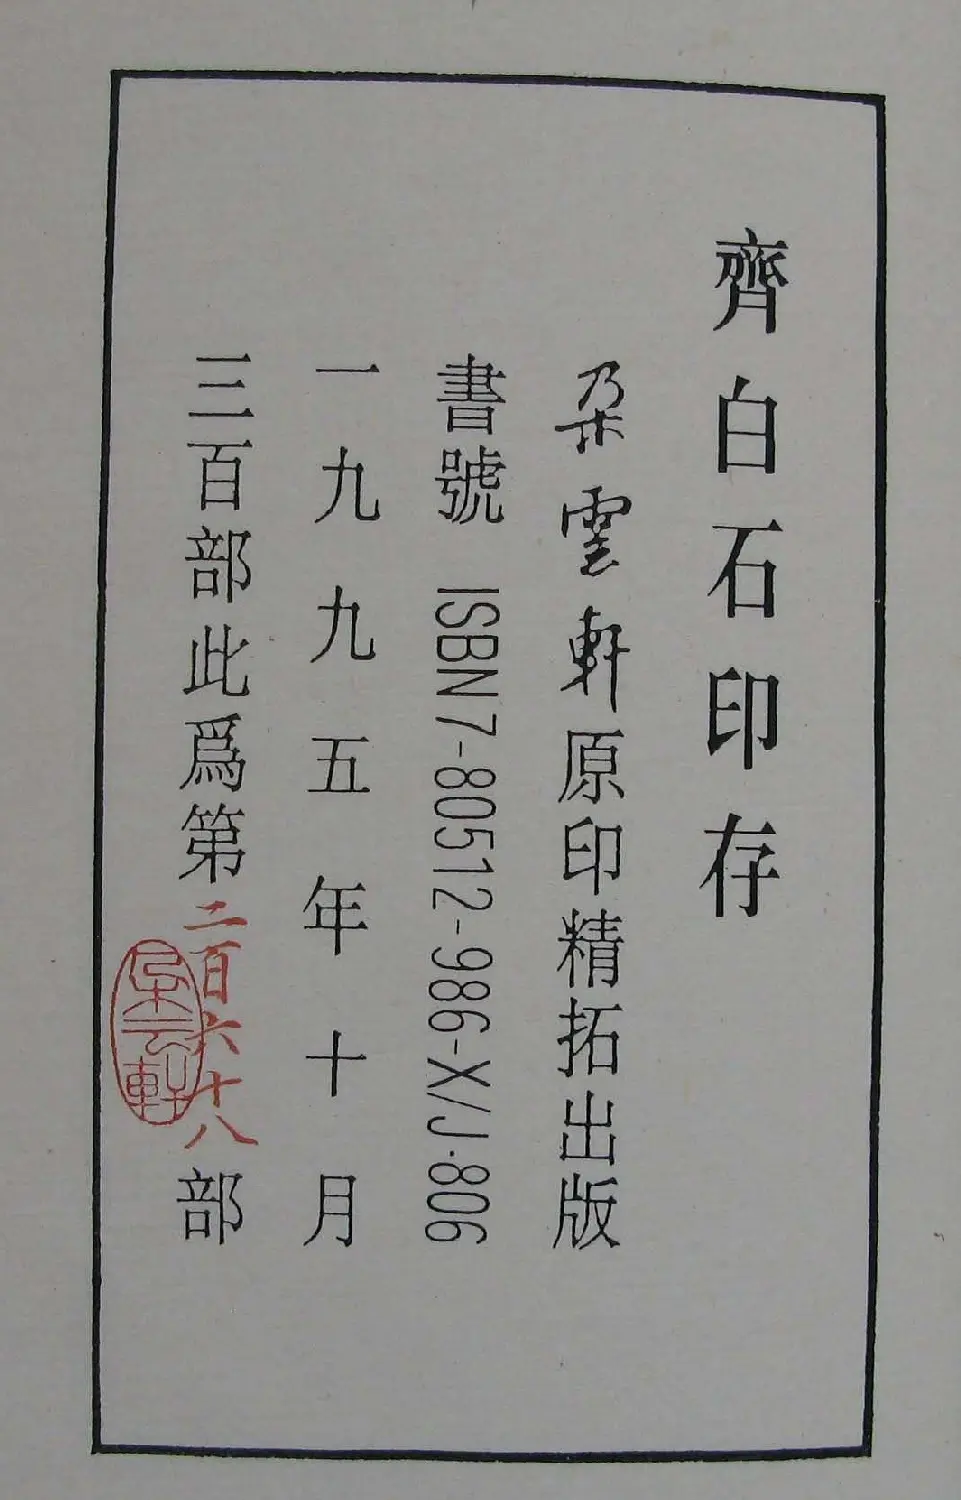 齊白石印存
朵雲軒原印精拓出版
書號 ISBN7-80512-986-X/J·806
一九九五年十月
三百部此爲第二百六十八部
朵云軒